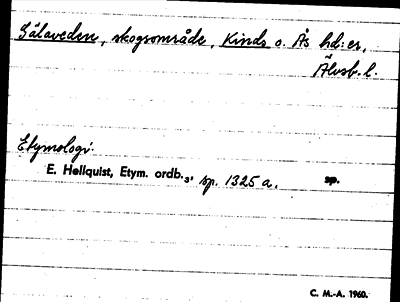 Sälaveden, skogsområde, Kinds o. Ås hd:er,
Älvsb. l.
Etymologi.
E. Hellquist, Etym. ordb.₃, sp. 1325 a. sp.
C. M.-A. 1960.